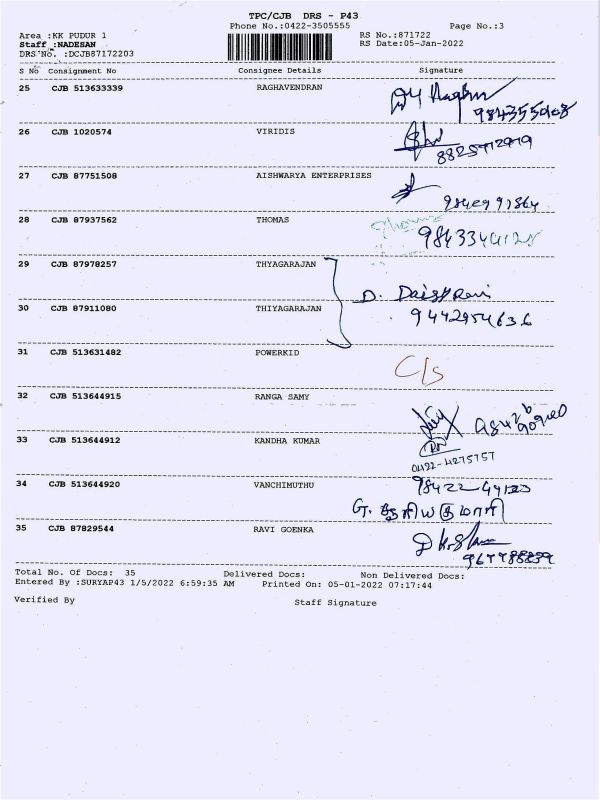 TPC/CJB DRS - P43
Phone No.:0422-3505555 Page No.:3
Area :KK PUDUR 1 RS No.:871722
Staff :NADESAN RS Date:05-Jan-2022
DRS No. :DCJB87172203
S No Consignment No Consignee Details Signature
25 CJB 513633339 RAGHAVENDRAN
26 CJB 1020574 VIRIDIS
27 CJB 87751508 AISHWARYA ENTERPRISES
28 CJB 87937562 THOMAS
29 CJB 87978257 THYAGARAJAN
D.
30 CJB 87911080 THIYAGARAJAN
9442954636
31 CJB 513631482 POWERKID
C/s
32 CJB 513644915 RANGA SAMY
33 CJB 513644912 KANDHA KUMAR
0422-4275757
34 CJB 513644920 VANCHIMUTHU
35 CJB 87829544 RAVI GOENKA
Total No. Of Docs: 35 Delivered Docs: Non Delivered Docs:
Entered By :SURYAP43 1/5/2022 6:59:35 AM Printed On: 05-01-2022 07:17:44
Verified By Staff Signature